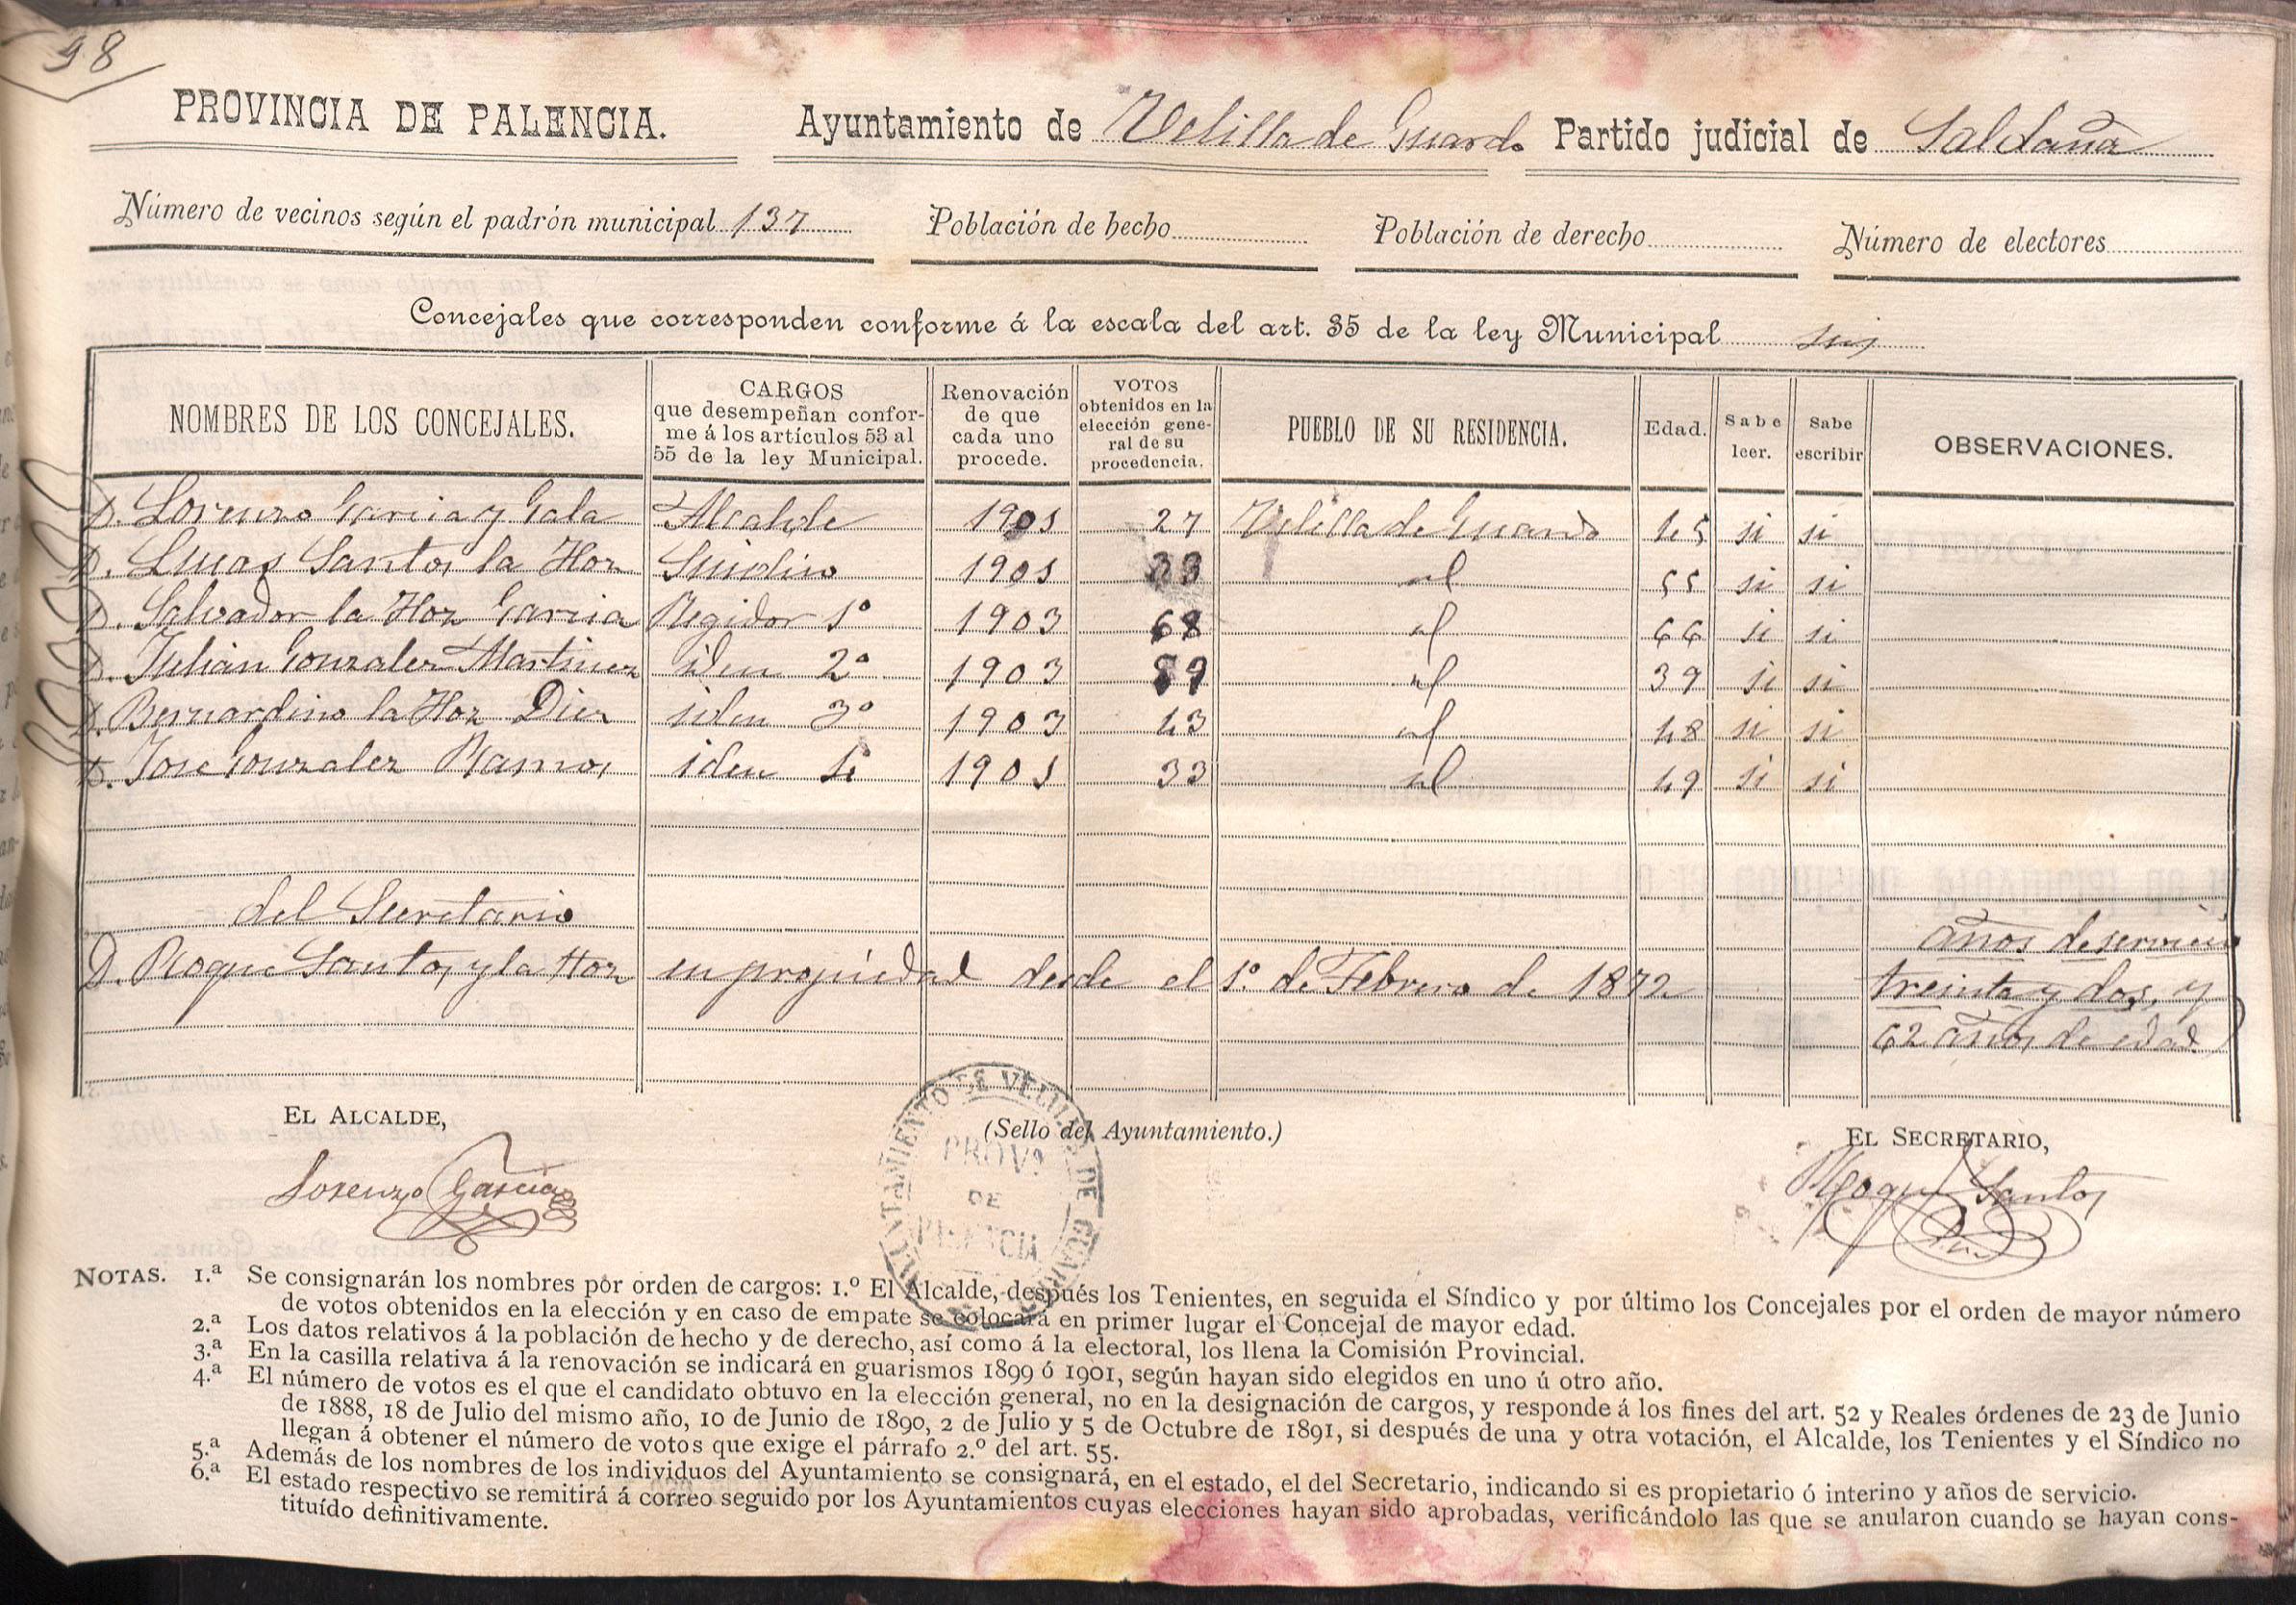 98
PROVINCIA DE PALENCIA. Ayuntamiento de Velilla de Guardo Partido judicial de Saldaña
Número de vecinos según el padrón municipal 137 Población de hecho Población de derecho Número de electores
Concejales que corresponden conforme á la escala del art. 35 de la ley Municipal seis
NOMBRES DE LOS CONCEJALES. CARGOS que desempeñan confor- me á los artículos 53 al 55 de la ley Municipal. Renovación de que cada uno procede. VOTOS obtenidos en la elección gene- ral de su procedencia. PUEBLO DE SU RESIDENCIA. Edad. Sabe leer. Sabe escribir OBSERVACIONES.
D. Lorenzo Garcia y Gala Alcalde 1901 27 Velilla de Guardo 45 si si
D. Lucas Santos la Hoz Sindico 1901 33 id 55 si si
D. Salvador la Hoz Garcia Regidor 1º 1903 68 id 66 si si
D. Julian Gonzalez Martinez iden 2º 1903 id 39 si si
D. Bernardino la Hoz Diez iden 3º 1903 43 id 48 si si
D. Jose Gonzalez Ramos iden 4º 1901 33 id 49 si si
del Secretario
D. Roque Santos y la Hoz en propiedad desde el 1º de Febrero de 1872
años de servicio
treinta y dos, y
62 años de edad
EL ALCALDE, (Sello del Ayuntamiento.) EL SECRETARIO,
Lorenzo Garcia Roque Santos
AYUNTAMIENTO DE VELILLA DE GUARDO
PROVª
DE
PALENCIA
NOTAS. 1.ª Se consignarán los nombres por orden de cargos: 1.º El Alcalde, después los Tenientes, en seguida el Síndico y por último los Concejales por el orden de mayor número
de votos obtenidos en la elección y en caso de empate se colocará en primer lugar el Concejal de mayor edad.
2.ª Los datos relativos á la población de hecho y de derecho, así como á la electoral, los llena la Comisión Provincial.
3.ª En la casilla relativa á la renovación se indicará en guarismos 1899 ó 1901, según hayan sido elegidos en uno ú otro año.
4.ª El número de votos es el que el candidato obtuvo en la elección general, no en la designación de cargos, y responde á los fines del art. 52 y Reales órdenes de 23 de Junio
de 1888, 18 de Julio del mismo año, 10 de Junio de 1890, 2 de Julio y 5 de Octubre de 1891, si después de una y otra votación, el Alcalde, los Tenientes y el Síndico no
llegan á obtener el número de votos que exige el párrafo 2.º del art. 55.
5.ª Además de los nombres de los individuos del Ayuntamiento se consignará, en el estado, el del Secretario, indicando si es propietario ó interino y años de servicio.
6.ª El estado respectivo se remitirá á correo seguido por los Ayuntamientos cuyas elecciones hayan sido aprobadas, verificándolo las que se anularon cuando se hayan cons-
tituído definitivamente.